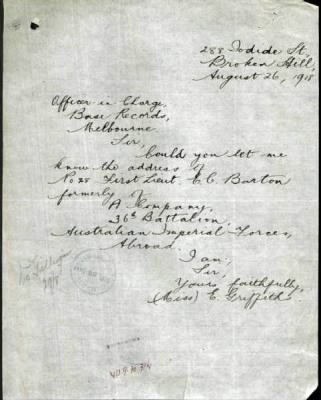 288 Iodide St.
Broken Hill,
August 26, 1918
Officer in Charge,
Base Records,
Melbourne
Sir
Could you let me
know the address of
No 28 First Lieut. E C. Barton
formerly of
A Company,
36th Battalion,
Australian Imperial Forces,
Abroad.
I am,
Sir,
Yours faithfully,
(Miss) E. Griffiths